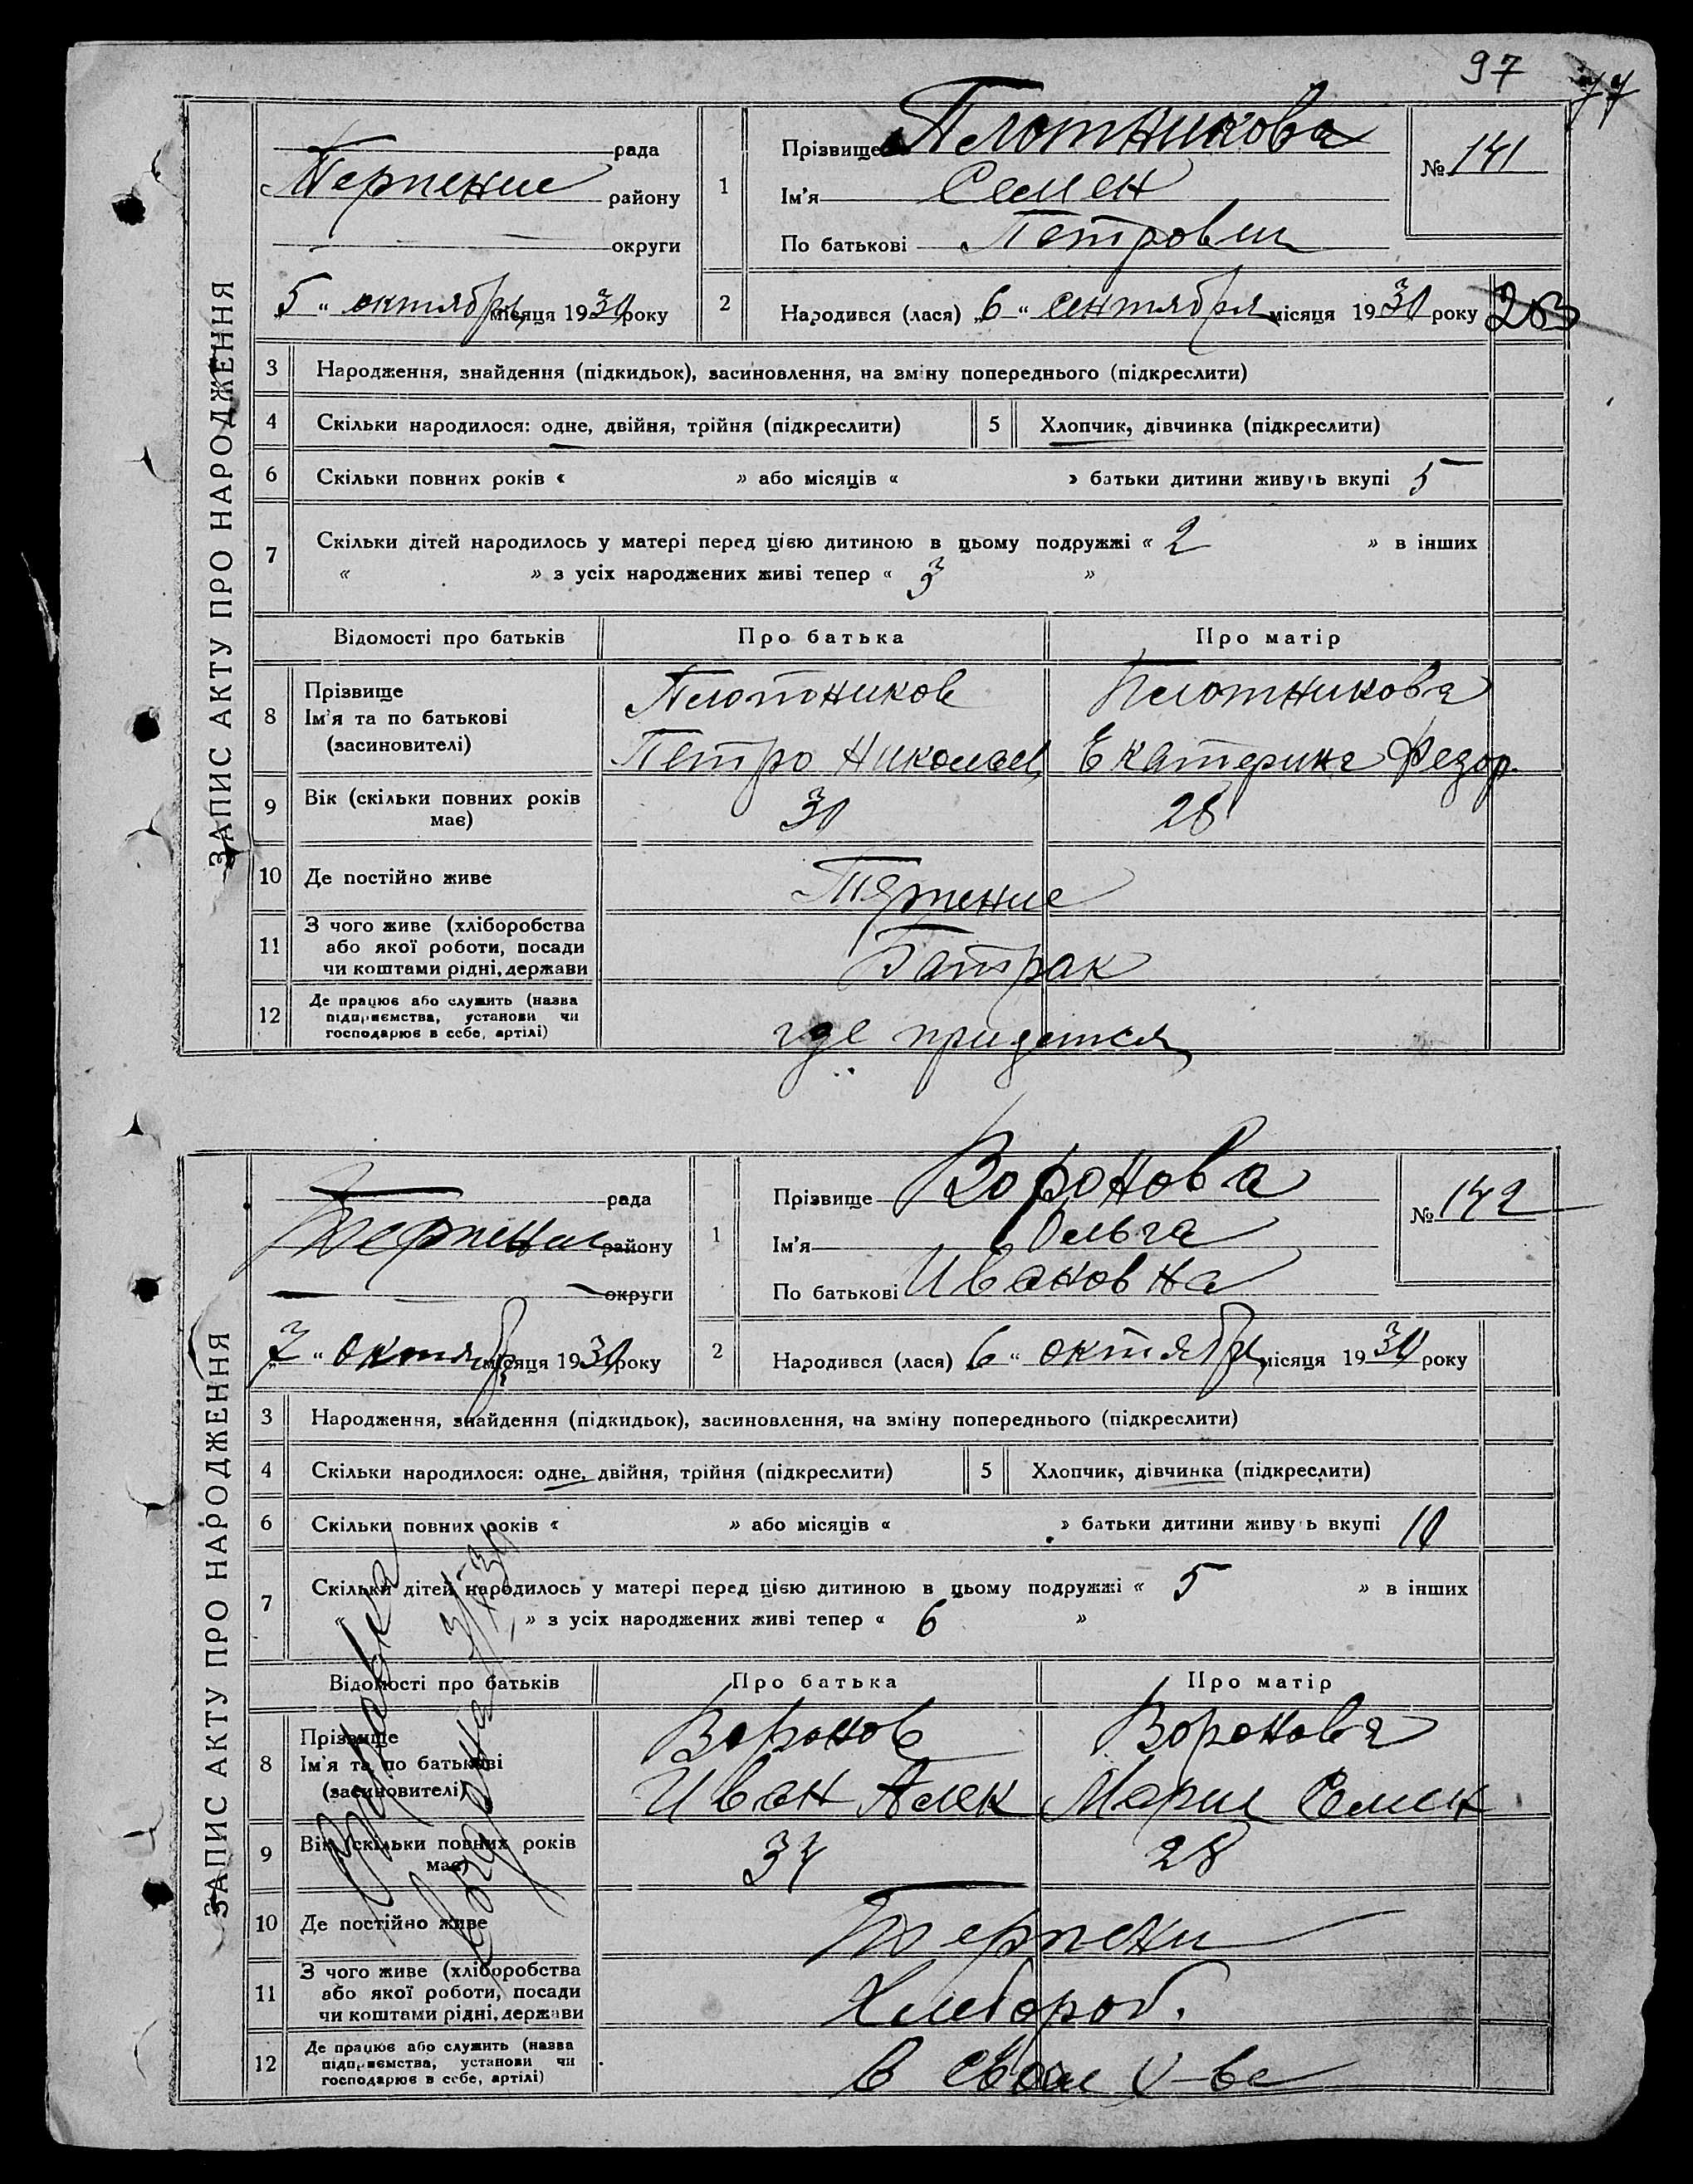 97 77
ЗАПИС АКТУ ПРО НАРОДЖЕННЯ
рада
Терпение району
округи
„5“ октября місяця 1930 року
1
Прізвище Плотникова
Ім'я Семен
По батькові Петрович
№ 141
2
Народився (лася) „6“ сентября місяця 1930 року
203
3 Народження, знайдення (підкидьок), засиновлення, на зміну попереднього (підкреслити)
4 Скільки народилося: одне, двійня, трійня (підкреслити) 5 Хлопчик, дівчинка (підкреслити)
6 Скільки повних років « » або місяців « » батьки дитини живуть вкупі 5
7 Скільки дітей народилось у матері перед цією дитиною в цьому подружжі « 2 » в інших
« » з усіх народжених живі тепер « 3 »
Відомості про батьків Про батька Про матір
8 Прізвище Плотников Плотникова
Ім'я та по батькові
(засиновителі) Петро Николаев Екатерина Федор.
9 Вік (скільки повних років
має) 30 28
10 Де постійно живе Терпение
11 З чого живе (хліборобства
або якої роботи, посади
чи коштами рідні, держави Батрак
12 Де працює або служить (назва
підприємства, установи чи
господарює в себе, артілі) где придется
ЗАПИС АКТУ ПРО НАРОДЖЕННЯ
рада
Терпение району
округи
„7“ октября місяця 1930 року
1
Прізвище Воронова
Ім'я Ольга
По батькові Ивановна
№ 142
2
Народився (лася) „6“ октября місяця 1930 року
3 Народження, знайдення (підкидьок), засиновлення, на зміну попереднього (підкреслити)
4 Скільки народилося: одне, двійня, трійня (підкреслити) 5 Хлопчик, дівчинка (підкреслити)
6 Скільки повних років « » або місяців « » батьки дитини живуть вкупі 10
7 Скільки дітей народилось у матері перед цією дитиною в цьому подружжі « 5 » в інших
« » з усіх народжених живі тепер « 6 »
Відомості про батьків Про батька Про матір
8 Прізвище Воронов Воронова
Ім'я та по батькові
(засиновителі) Иван Алек Мария Семен
9 Вік (скільки повних років
має) 34 28
10 Де постійно живе Терпени
11 З чого живе (хліборобства
або якої роботи, посади
чи коштами рідні, держави Хлебороб.
12 Де працює або служить (назва
підприємства, установи чи
господарює в себе, артілі) в своем х-ве